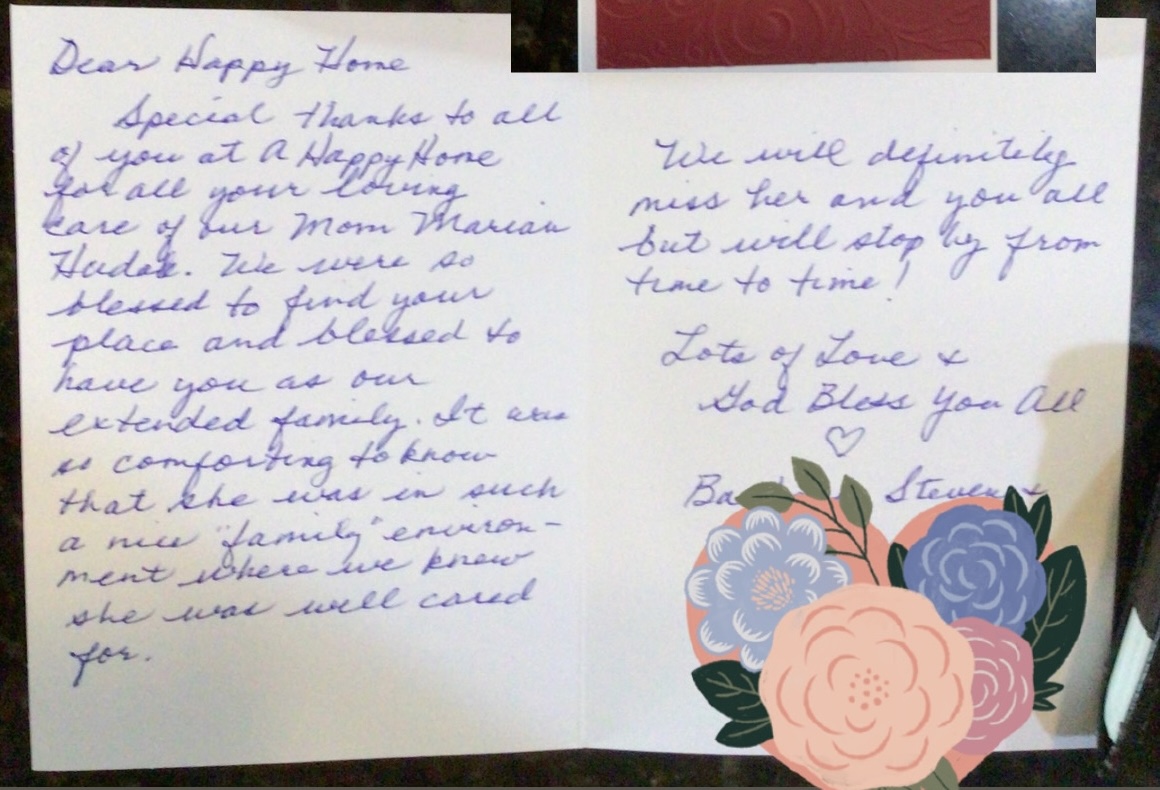 Dear Happy Home
Special thanks to all
of you at A Happy Home
for all your loving
care of our Mom Marian
We were so
blessed to find your
place and blessed to
have you as our
extended family. It was
so comforting to know
that she was in such
a nice "family" environ-
ment where we knew
she was well cared
for.
We will definitily
miss her and you all
but will stop by from
time to time!
Lots of Love &
God Bless You All